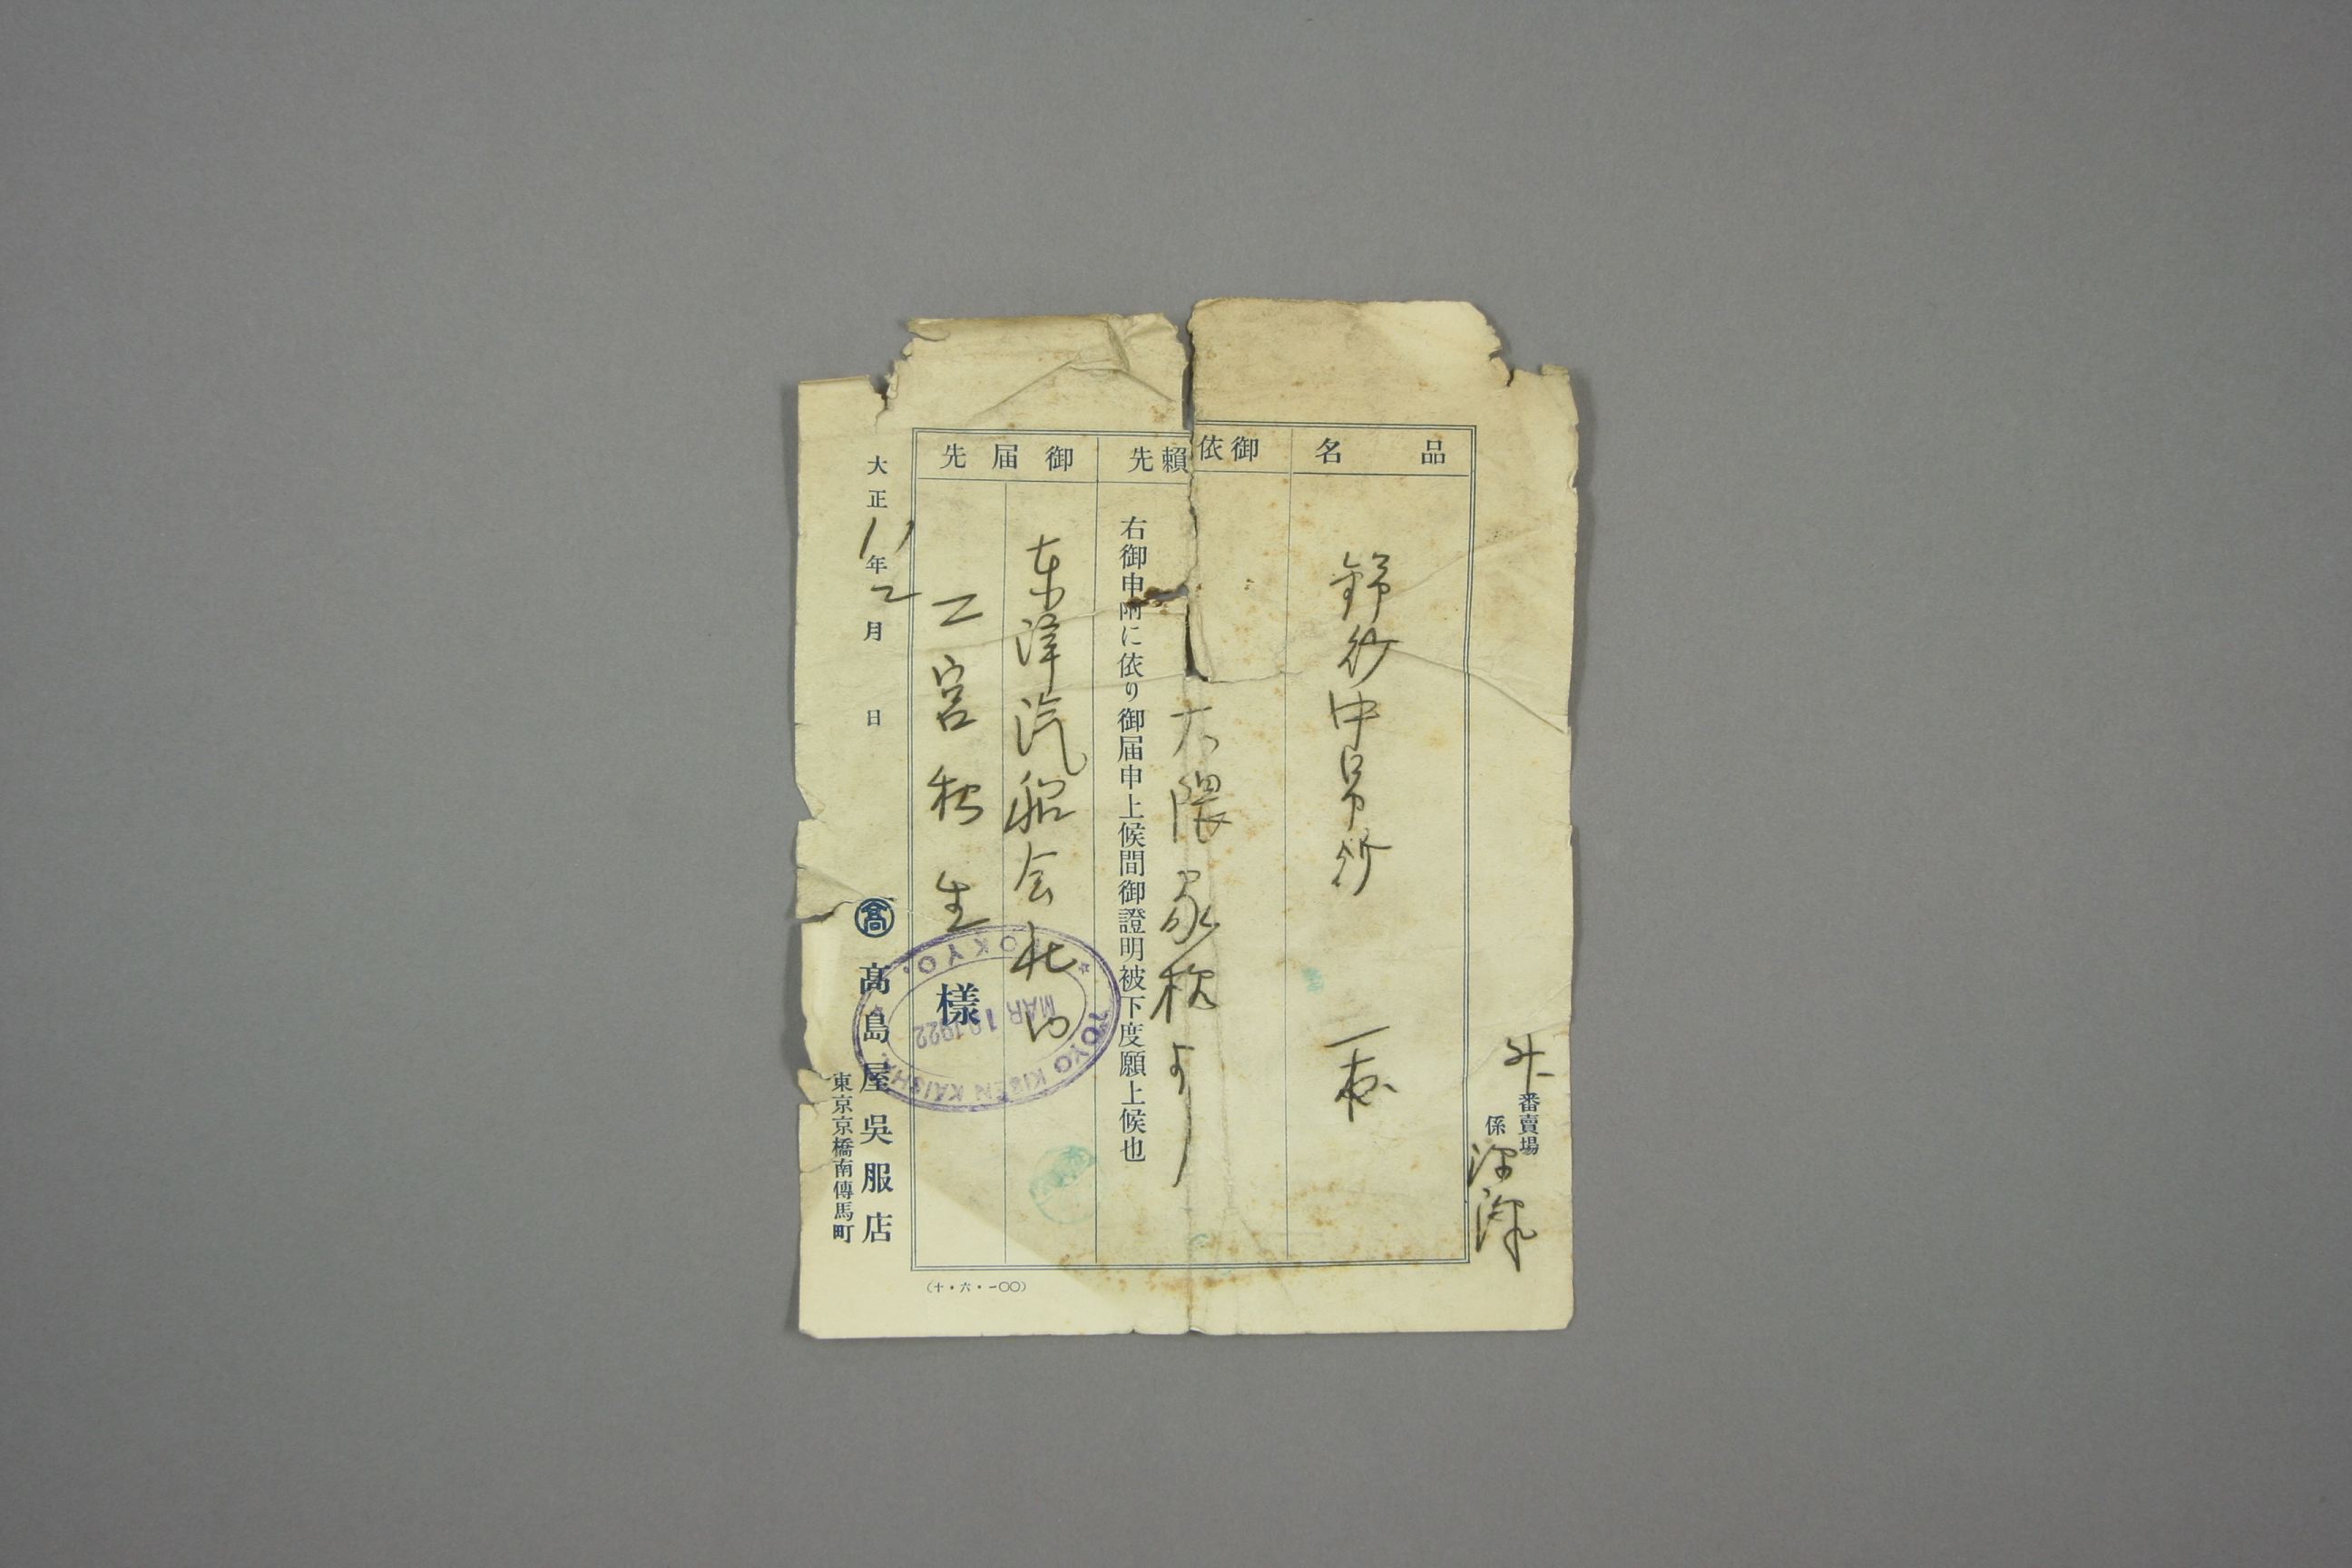 外番賣場
係
品名
錦紗中帛紗 一枚
御依賴先
大隈家様より
右御申附に依り御届申上候間御證明被下度願上候也
御届先
东洋汽船会社内
二宮秋生
樣
大正11年2月 日
髙
髙島屋呉服店
東京京橋南傳馬町
(十・六・一〇〇)
TOYO KISEN KAISHA
MAR 1 1922
TOKYO